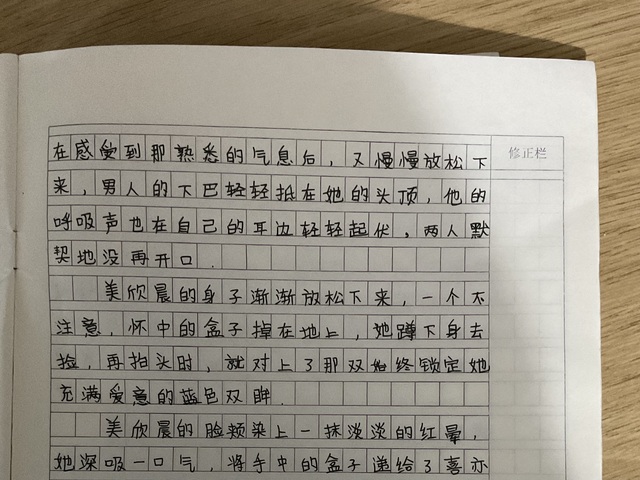 修正栏
在感受到那熟悉的气息后，又慢慢放松下
来，男人的下巴轻轻抵在她的头顶，他的
呼吸声也在自己的耳边轻轻起伏，两人默
契地没再开口．
美欣晨的身子渐渐放松下来，一个不
注意，怀中的盒子掉在地上，她蹲下身去
捡，再抬头时，就对上了那双始终锁定她
充满爱意的蓝色双眸．
美欣晨的脸颊染上一抹淡淡的红晕，
她深吸一口气，将手中的盒子递给了喜亦